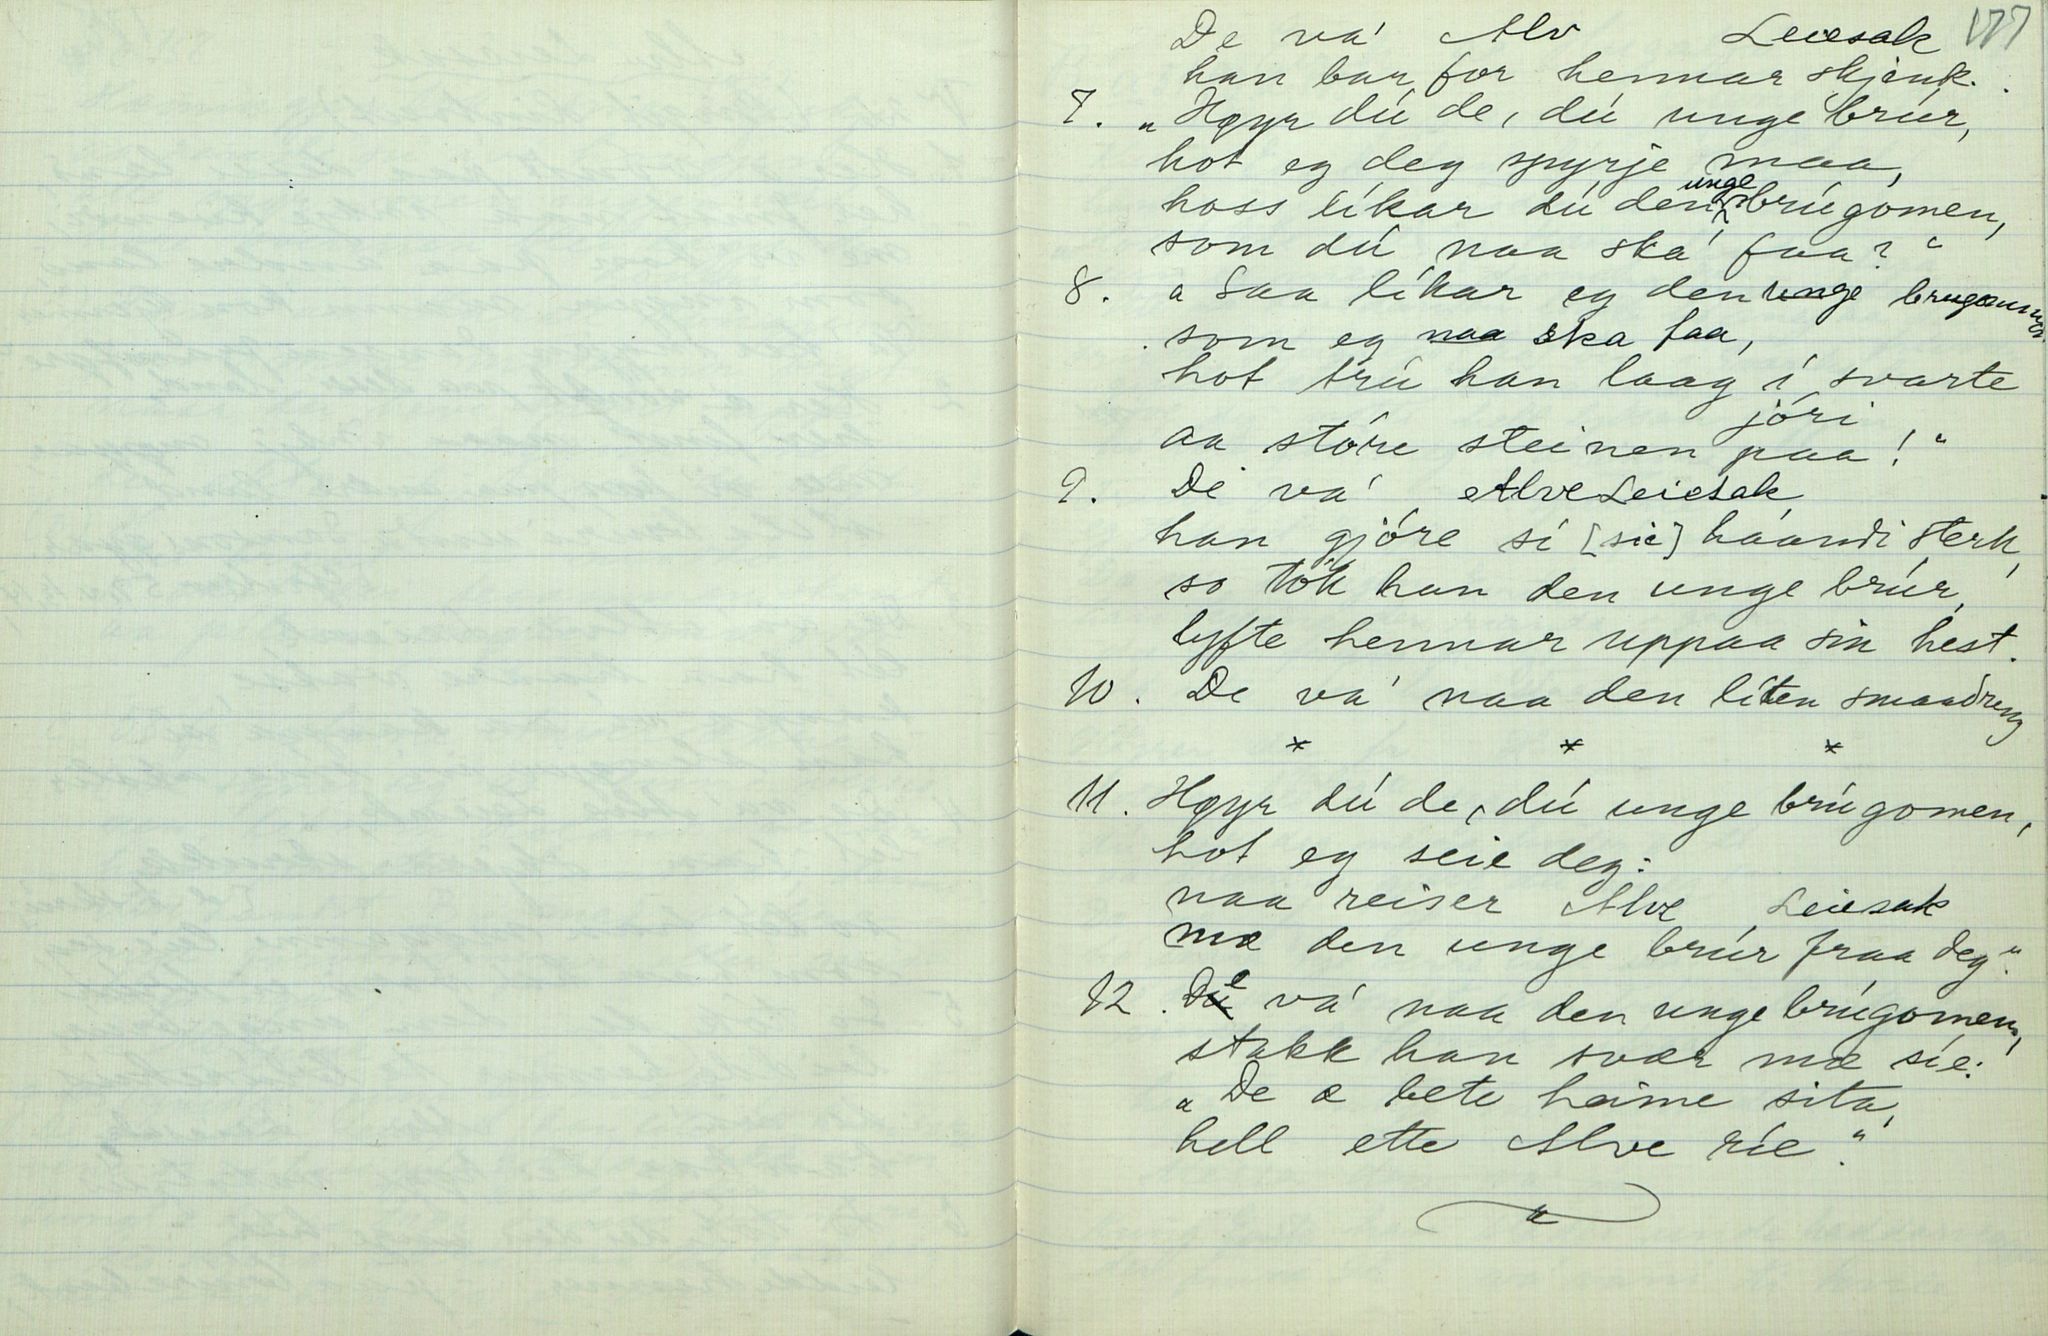 177
De vá Alv Leiesak
han bar for hennar skjenk.
7. „Høyr dú de, dú unge brúr,
hot eg deg spyrje maa,
hoss líkar dú den unge brúgomen,
som dú naa ská faa?“
8. „Saa líkar eg den unge brugommen
som eg naa ska faa,
hot trú han laag í svarte
jóri
aa stóre steinen paa!“
9. De vá Alve Leiesak
han gjóre sí [sie] háandi sterk,
so tók han den unge brúr,
lyfte hennar uppaa sin hest.
10. De vá naa den líten smaadreng
* * *
11. Høyr dú de, dú unge brúgomen,
hot eg seie deg:
naa reiser Alve Leiesak
mæ den unge brúr fraa deg“.
12. De vá naa den unge brúgomen,
stakk han svær mæ síe:
„De æ bete heime sita,
hell ette Alve ríe.“